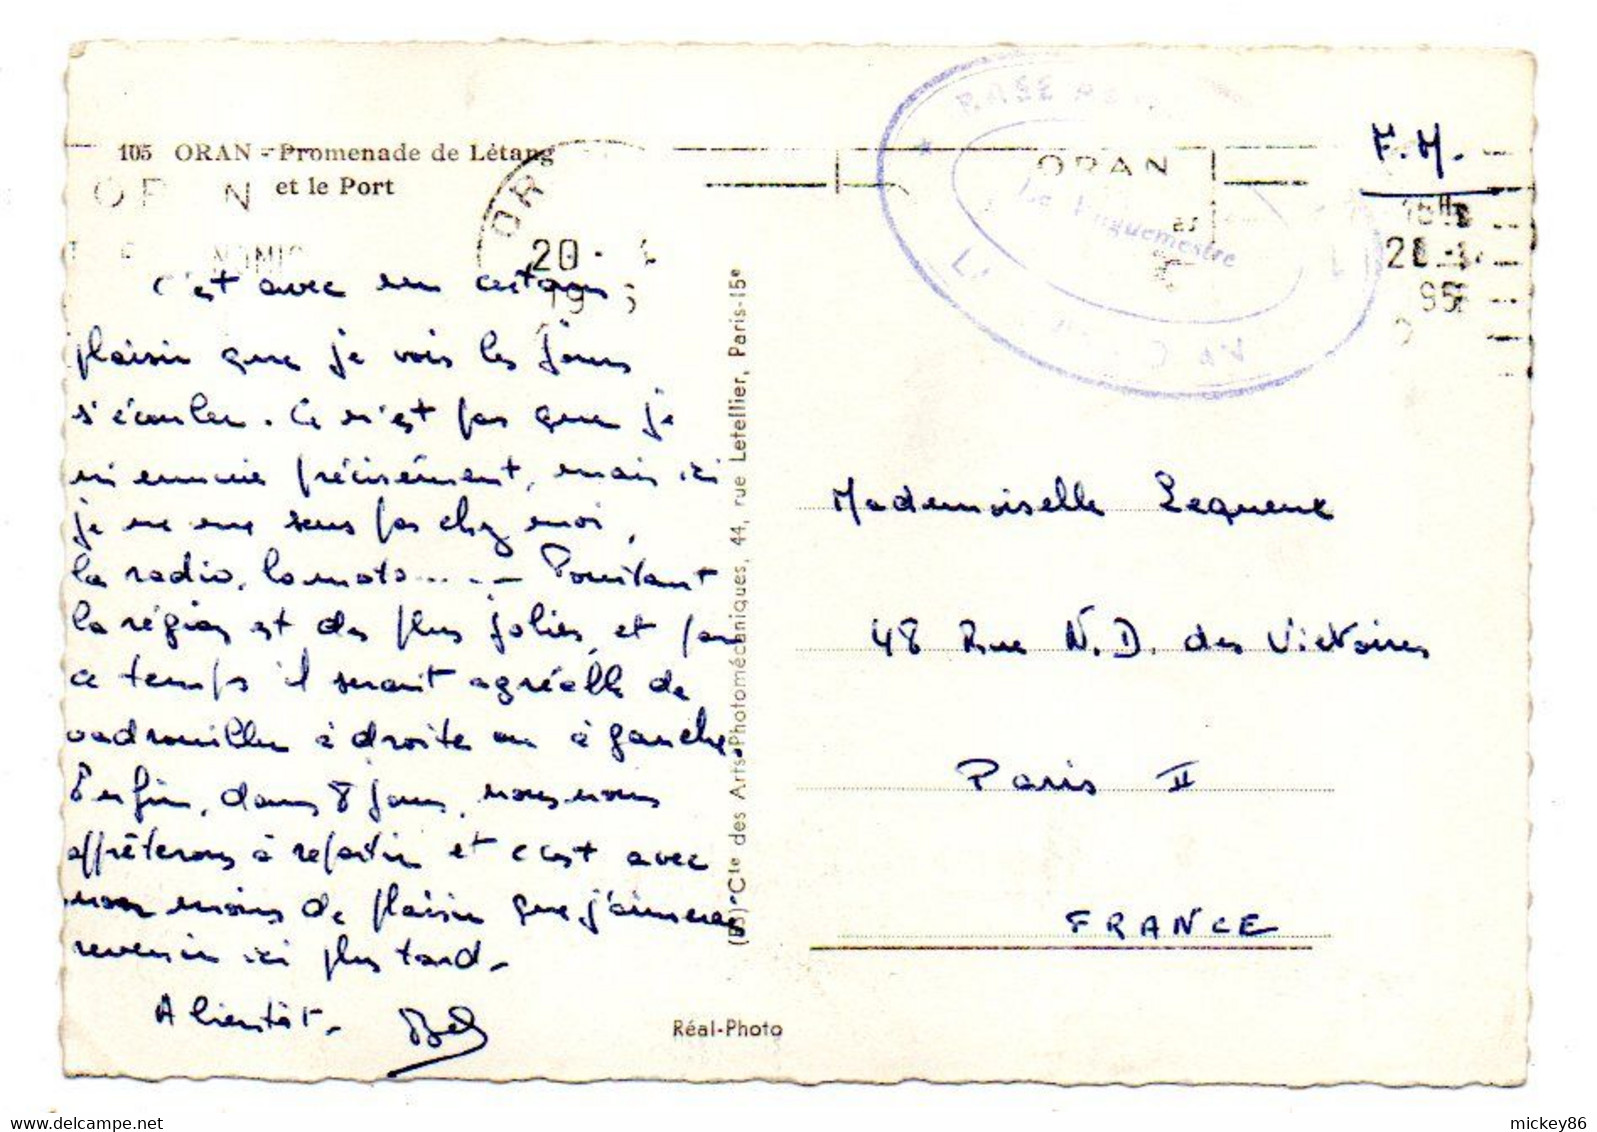 105 ORAN - Promenade de Létang
et le Port
ORAN
20
c'est avec un certain
plaisir que je vois les jours
s'écouler. Ce n'est pas que je
m'ennuie précisément, mais ici
je ne me sens pas chez moi,
la radio, la moto..... Pourtant
la région est des plus jolies, et par
ce temps il serait agréable de
vadrouiller à droite ou à gauche.
Enfin, dans 8 jours, nous nous
apprêterons à repartir et c'est avec
non moins de plaisir que j'aimerais
revenir ici plus tard.
A bientôt.
(BS) Cie des Arts Photomécaniques, 44, rue Letellier, Paris-15e
Réal-Photo
BASE
Le Vaguemestre
ORAN
F.M.
Mademoiselle Lequeux
48 Rue N.D. des Victoires
Paris II
FRANCE
mickey86